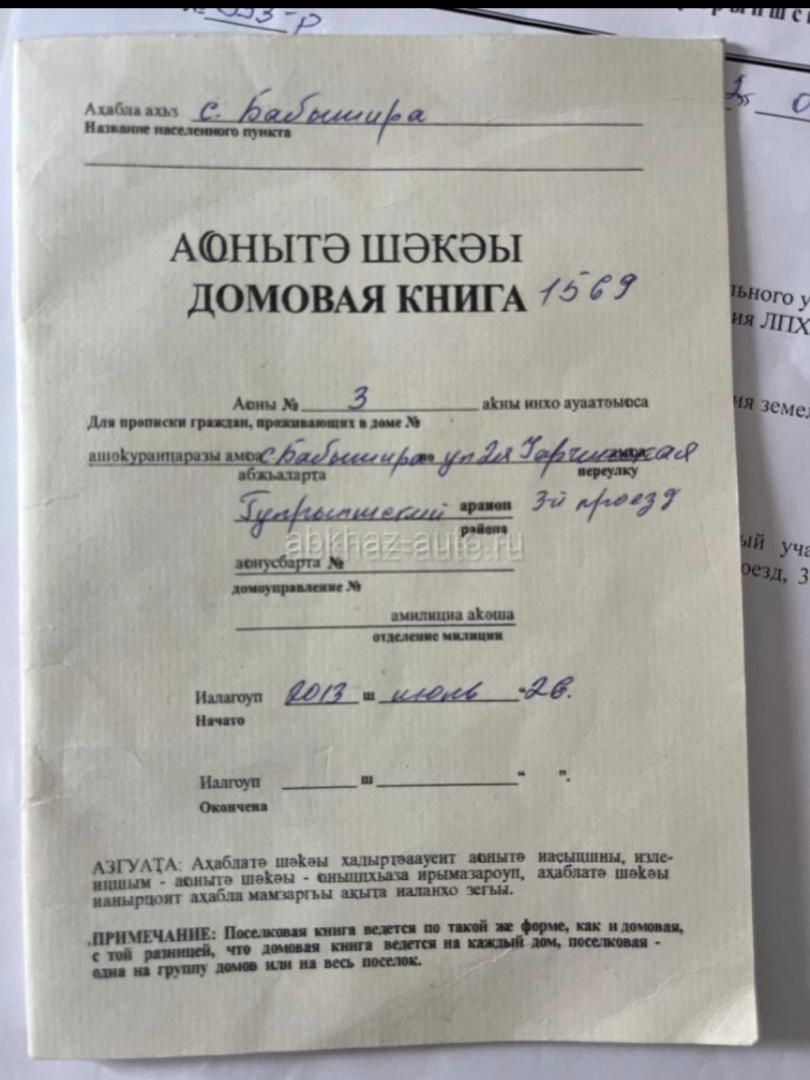 № 593-р
Аҳабла ахьӡ с. Бабышира
Название населенного пункта
АҨНЫТӘ ШӘҞӘЫ
ДОМОВАЯ КНИГА 1569
Аҩны № 3 аҟны инхо ауааҭәыҩса
Для прописки граждан, проживающих в доме №
с Бабышира ул 2я
абжьаларҭа переулку
Гулрыпшский араион 3-й проезд
района
abkhaz-auto.ru
аҩнусбарҭа №
домоуправление №
амилициа аҟәша
отделение милиции
Иалагоуп 2013 ш июль "26.
Начато
Иалгоуп ш " ".
Окончена
АЗГУАҬА: Аҳаблатә шәҟәы хадырҭәаауеит аҩнытә иаҿыцшны, изле-
ицшым - аҩнытә шәҟәы - ҩныцԥхьаӡа ирымазароуп, аҳаблатә шәҟәы
нанырҵоит аҳабла мамзаргьы ақыҭа иаланхо зегьы.
ПРИМЕЧАНИЕ: Поселковая книга ведется по такой же форме, как и домовая,
с той разницей, что домовая книга ведется на каждый дом, поселковая -
одна на группу домов или на весь поселок.
льного у
ия ЛПХ
ия земел
ый уча
оезд, 3